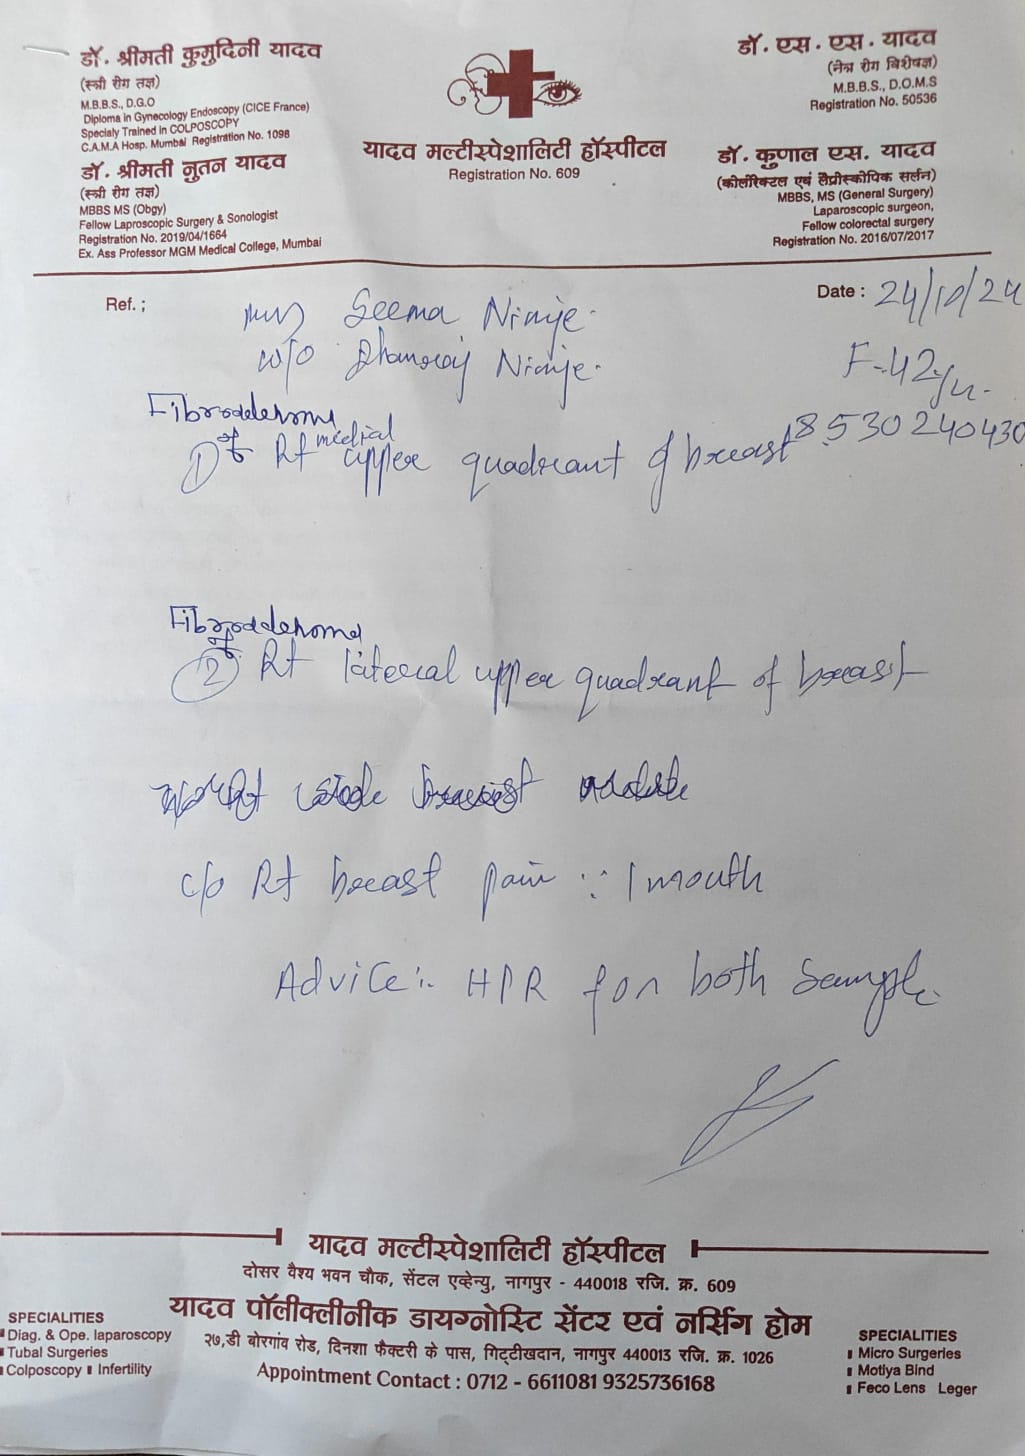 डॉ. श्रीमती कुमुदिनी यादव
(स्त्री रोग तज्ञ)
M.B.B.S., D.G.O
Diploma in Gynecology Endoscopy (CICE France)
Specialy Trained in COLPOSCOPY
C.A.M.A Hosp. Mumbai Registration No. 1098
डॉ. श्रीमती नुतन यादव
(स्त्री रोग तज्ञ)
MBBS MS (Obgy)
Fellow Laproscopic Surgery & Sonologist
Registration No. 2019/04/1664
Ex. Ass Professor MGM Medical College, Mumbai
यादव मल्टीस्पेशालिटी हॉस्पीटल
Registration No. 609
डॉ. एस. एस. यादव
(नेत्र रोग विशेषज्ञ)
M.B.B.S., D.O.M.S
Registration No. 50536
डॉ. कुणाल एस. यादव
(कोलोरेक्टल एवं लॅप्रोस्कोपिक सर्जन)
MBBS, MS (General Surgery)
Laparoscopic surgeon,
Fellow colorectal surgery
Registration No. 2016/07/2017
Ref. ;
Date : 24/10/24
Seema Nimje.
w/o Dhanraj Nimje.
F-42yr.
8530240430
Fibroadenoma
① of Rt medial upper quadrant of breast
Fibroadenoma
of
② Rt lateral upper quadrant of breast
c/o Rt breast pain ∵ 1 month
Advice :- HPR for both sample.
यादव मल्टीस्पेशालिटी हॉस्पीटल
दोसर वैश्य भवन चौक, सेंटल एव्हेन्यु, नागपुर - 440018 रजि. क्र. 609
यादव पॉलीक्लीनीक डायग्नोस्टि सेंटर एवं नर्सिंग होम
२७,डी बोरगांव रोड, दिनशा फैक्टरी के पास, गिट्टीखदान, नागपुर 440013 रजि. क्र. 1026
Appointment Contact : 0712 - 6611081 9325736168
SPECIALITIES
Diag. & Ope. laparoscopy
Tubal Surgeries
Colposcopy Infertility
SPECIALITIES
Micro Surgeries
Motiya Bind
Feco Lens Leger